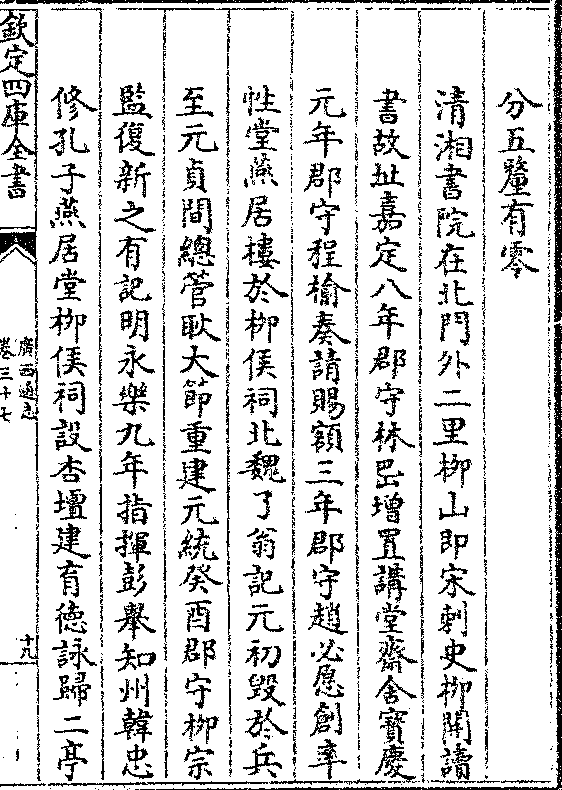 分五釐有零
清湘書院在北門外二里栁山即宋刺史栁開讀
書故址嘉定八年郡守林岊增置講堂齋舍寳慶
元年郡守程榆奏請賜額三年郡守趙必愿創率
性堂燕居樓於栁侯祠北魏了翁記元初毁於兵
至元貞間總管耿大節重建元統癸酉郡守栁宗
監復新之有記明永樂九年指揮彭舉知州韓忠
修孔子燕居堂栁侯祠設杏壇建育徳詠歸二亭
欽定四庫全書
廣西通志
卷三十七
十九